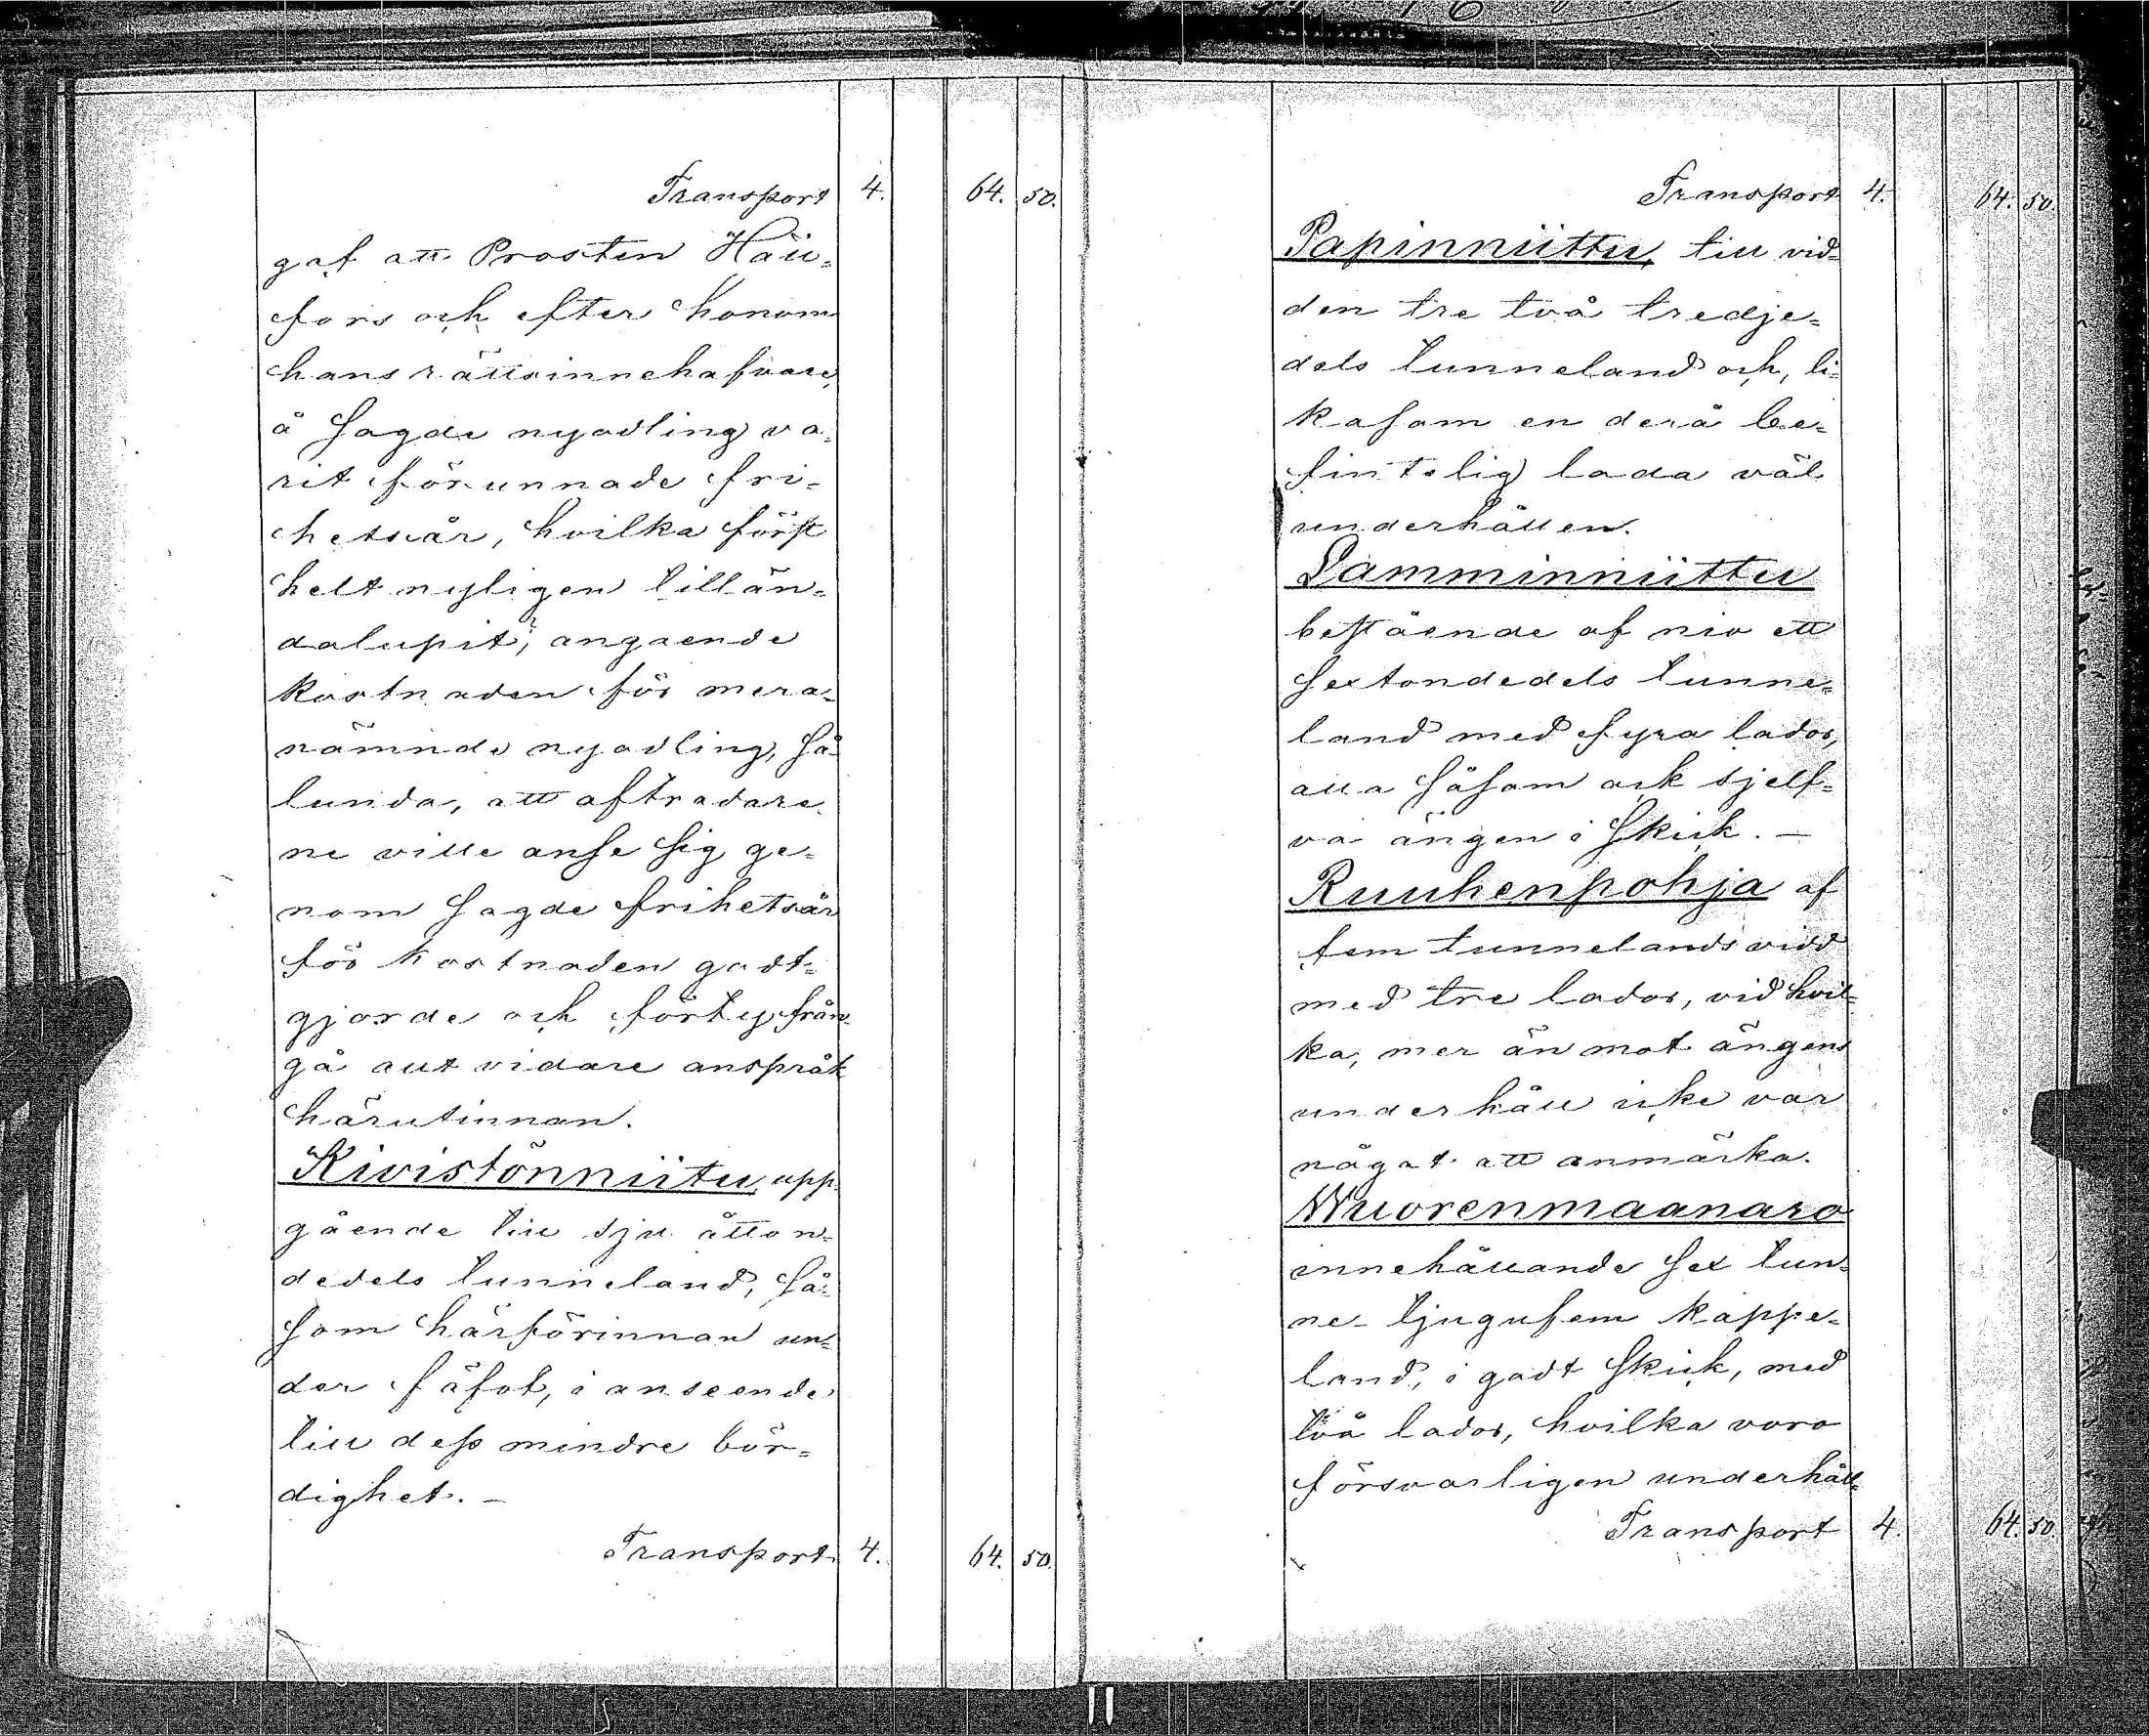 Transport 4. 64. 50.
gaf att Prosten Häll=
fors och efter honom
hans rättsinnehafvare,
å sagde nyodling va=
rit förunnade fri=
hetsår, hvilka först
helt nyligen tillän=
dalupit; angaende
kostnaden för mera=
nämnde nyodling, så=
lunda, att aftradare=
ne ville anse sig ge=
nom sagde frihetsår
för kostnaden godt=
gjorde och förty från=
gå allt vidare anspråk
härutinnan.
Kivistönniitu, upp=
gående till sju åtton=
dedels tunneland, så=
som härförinnan un=
der fäfot, i anseende
till dess mindre bör=
dighet. –
Transport 4. 64. 50.
Transport 4. 64. 50.
Papinniittu, till vid=
den tre två tredje=
dels tunneland och, li=
kasom en derå be=
fintelig lada väl
underhållen.
Lamminniittu
bestående af nio ett
sextondedels tunne=
land med fyra lador,
alla såsom ock sjelf=
va ängen i skick. –
Ruuhenpohja af
fem tunnelands vidd
med tre lador, vid hvil=
ka, mer än mot ängens
underhåll icke var
något att anmärka.
Wuorenmaanaro
innehållande sex tun=
ne- tjugufem kappe=
land, i godt skick, med
två lador, hvilka voro
försvarligen underhåll=
Transport 4. 64. 50.